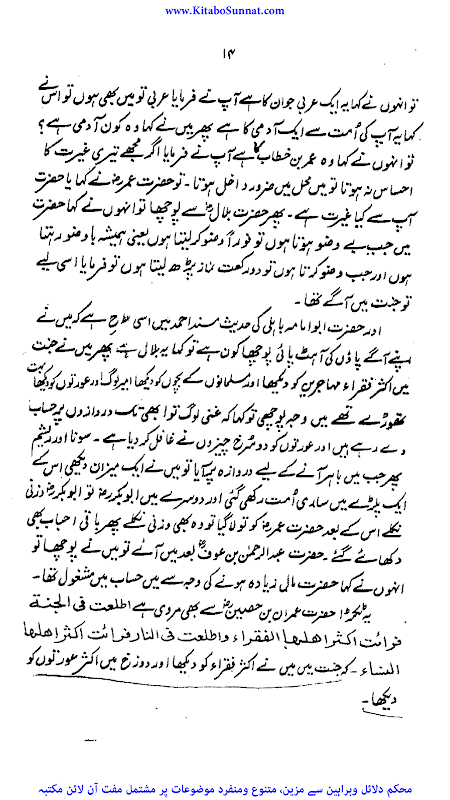 www.KitaboSunnat.com
۱۴
تو انہوں نے کہا یہ ایک عربی جوان کا ہے آپ نے فرمایا عربی تو میں بھی ہوں تو اس نے
کہا یہ آپ کی اُمت سے ایک آدمی کا ہے پھر میں نے کہا وہ کون آدمی ہے؟
تو انہوں نے کہا وہ عمر بن خطاب کا ہے آپ نے فرمایا اگر مجھے تیری غیرت کا
احساس نہ ہوتا تو میں محل میں ضرور داخل ہوتا ۔ تو حضرت عمرؓ نے کہا یا حضرت
آپ سے کیا غیرت ہے ۔ پھر حضرت بلالؓ سے پوچھا تو انہوں نے کہا حضرت
میں جب بے وضو ہوتا ہوں تو فوراً وضو کر لیتا ہوں یعنی ہمیشہ با وضو رہتا
ہوں اور جب وضو کرتا ہوں تو دو رکعت نماز پڑھ لیتا ہوں تو فرمایا اسی لیے
تو جنت میں آگے تھا ۔
اور حضرت ابو امامہ باہلی کی حدیث مسند احمد میں اسی طرح ہے کہ میں نے
اپنے آگے پاؤں کی آہٹ پائی پوچھا کون ہے تو کہا یہ بلالؓ ہے پھر میں نے جنت
میں اکثر فقراء مہاجرین کو دیکھا اور مسلمانوں کے بچوں کو دیکھا امیر لوگ اور عورتوں کو دیکھا بہت
تھوڑے تھے میں وجہ پوچھی تو کہا کہ غنی لوگ تو ابھی تک دروازوں پر حساب
دے رہے ہیں اور عورتوں کو دو سُرخ چیزوں نے غافل کر دیا ہے ۔ سونا اور ریشم
پھر جب میں باہر آنے کے لیے دروازہ پر آیا تو میں نے ایک میزان دیکھی اس کے
ایک پلڑے میں ساری اُمت رکھی گئی اور دوسرے میں ابوبکرؓ تو ابوبکرؓ وزنی
نکلے اس کے بعد حضرت عمرؓ کو تولا گیا تو وہ بھی وزنی نکلے پھر باقی احباب بھی
دکھائے گئے ۔ حضرت عبدالرحمٰن بن عوفؓ بعد میں آئے تو میں نے پوچھا تو
انہوں نے کہا حضرت مال زیادہ ہونے کی وجہ سے میں حساب میں مشغول تھا ۔
یہ ٹکڑا حضرت عمران بن حصینؓ سے بھی مروی ہے اطلعت فی الجنة
فرائت اکثر اهلها الفقراء واطلعت فی النار فرائت اکثر اهلها
النساء ۔ کہ جنت میں میں نے اکثر فقراء کو دیکھا اور دوزخ میں اکثر عورتوں کو
دیکھا ۔
محکم دلائل وبراہین سے مزین، متنوع ومنفرد موضوعات پر مشتمل مفت آن لائن مکتبہ